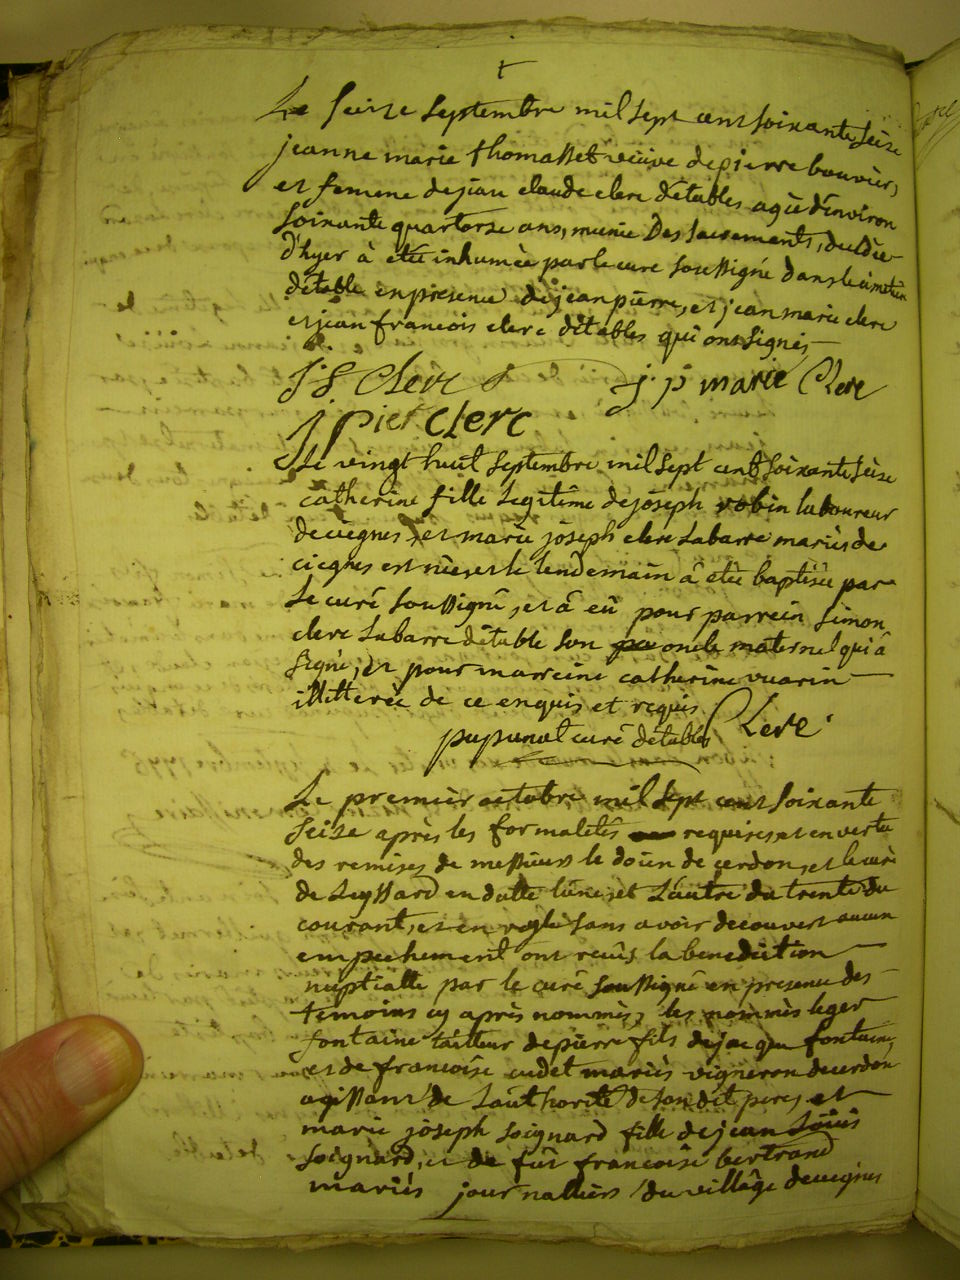 Le seize septembre mil sept cent soixante seize
jeanne marie thomasset veuve de pierre bouvier,
et femme de jean claude clerc d'etables agée d'environ
soixante quatorse ans, munie des sacrements, decédée
d'hyer à etée inhumée par le curé soussigné dans le cimetiere
d'etable en presence de jean pierre, et jean marie clerc
et jean francois clerc d'etables qui ont signés
J f Clerc j p marie Clerc
J pier clerc
Le vingt huit septembre mil sept cent soixante seise
catherine fille legitime de joseph robin laboureur
de ciegnes, et marie joseph clerc labarre mariés de
ciegnes est née, et le lendemain â etée baptisée par
Le curé soussigné, et â eû pour parrein simon
clerc labarre d'etable son oncle maternel qui â
signé, et pour marreine catherine vuarin
illitterée de ce enquis et requis
pupunat curé d'etables Clerc
Le premier octobre mil sept cent soixante
seize après les formalités requises, et en vertu
des remises de messieurs le doien de cerdon, et le curé
de Leyssard en datte l'une, et l'autre du trente du
courant, et en regle sans avoir decouvert aucun
empechement ont recûs la benediction
nuptialle par le curé soussigné en presence des
temoins cy après nommés, les nommés leger
fontaine tailleur de pierre fils de jacque fontaine,
et de francoise cadet mariés vigneron de cerdon
agissant de l'authorité de son dit pere, et
marie joseph soignard fille de jean loüis
soignard, et de fût francoise bertrand
mariés journalliers du villâge de ciegnes